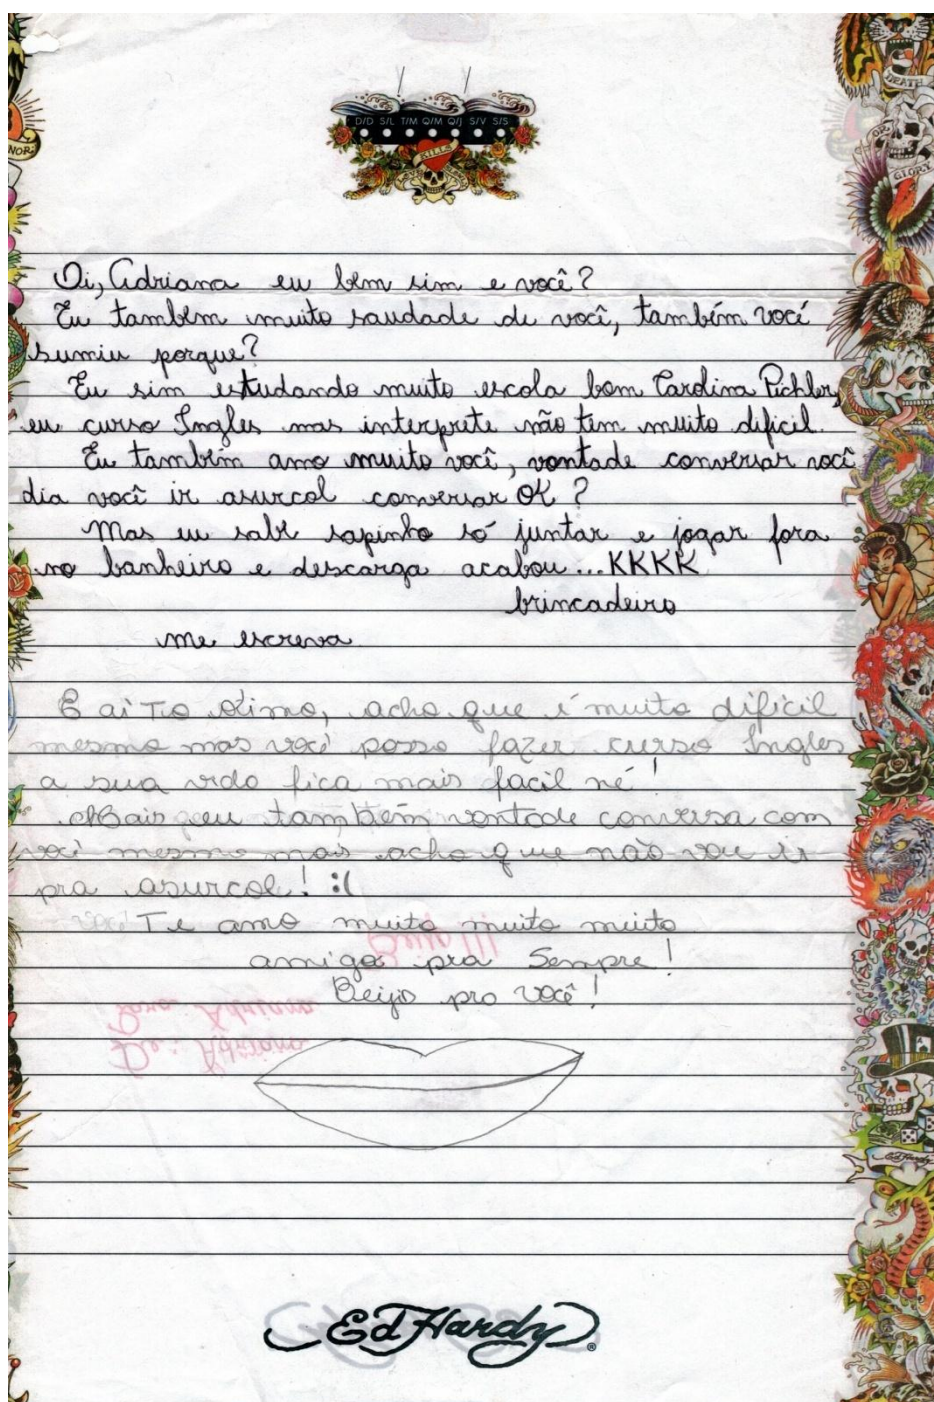 D/D S/L T/M Q/M Q/J S/V S/S
KILLS
LOVE
Oi, Adriana eu bem sim e você?
Eu tambem muito saudade de você, também você
sumiu porque?
Eu sim estudando muito escola bom Cardina Pichler,
eu curso Ingles mas interprete não tem muito dificil.
Eu também amo muito você, vontade conversar você
dia você ir asurcol conversar OK?
Mas eu sabe sapinho só juntar e jogar fora
no banheiro e descarga acabou...KKKK
brincadeira
me escreva
E ai Tio Dimo, acho que é muito dificil
mesmo mas você posso fazer curso Ingles
a sua vida fica mais facil né!
Mais eu também vontade conversa com
você mesmo mas acho que não vou ir
pra asurcol! :(
Te amo muito muito muito
amiga pra Sempre!
Beijo pro você!
Para: Adriana
De: Adriana
Ed Hardy®
DEATH
OR
GLORY
Ed Hardy